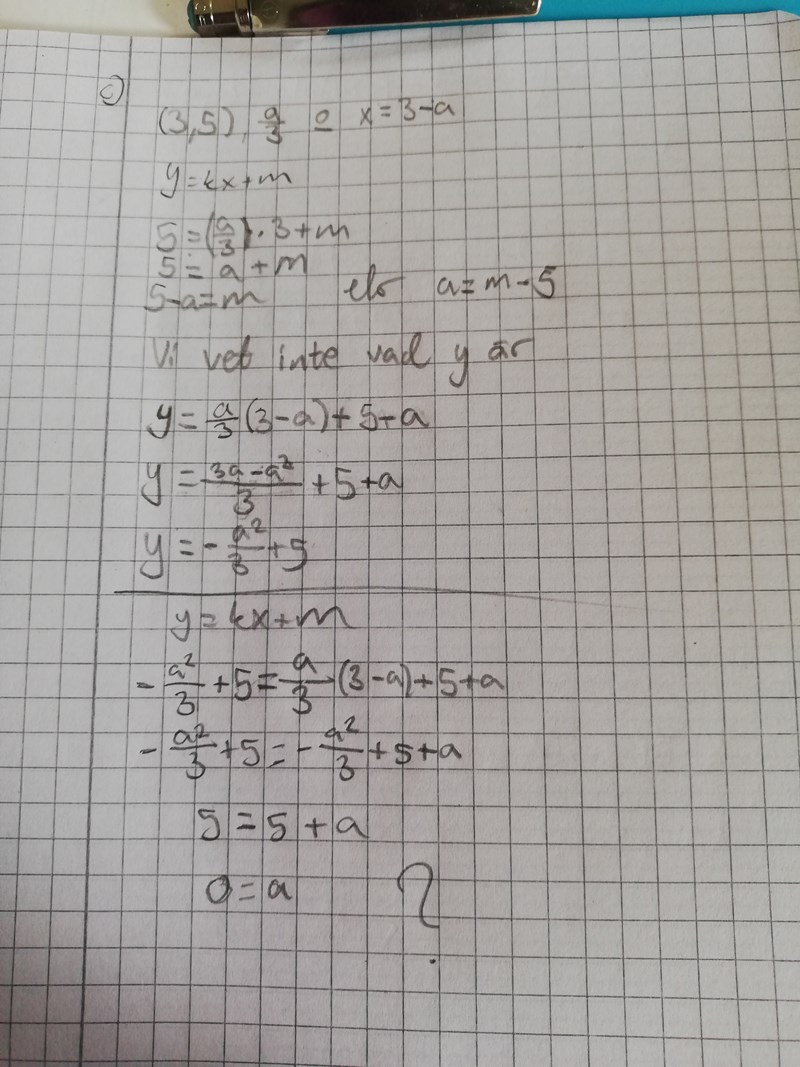 c)
(3,5), a/3 o x = 3-a
y = kx+m
5 = (a/3)·3+m
5 = a+m
5-a=m elr a=m-5
Vi vet inte vad y är
y = a/3(3-a)+5-a
y = 3a-a²/3 +5+a
y = -a²/3+5
y = kx+m
-a²/3 +5 = a/3 (3-a)+5+a
-a²/3+5 = -a²/3+5+a
5 = 5+a
0 = a ?